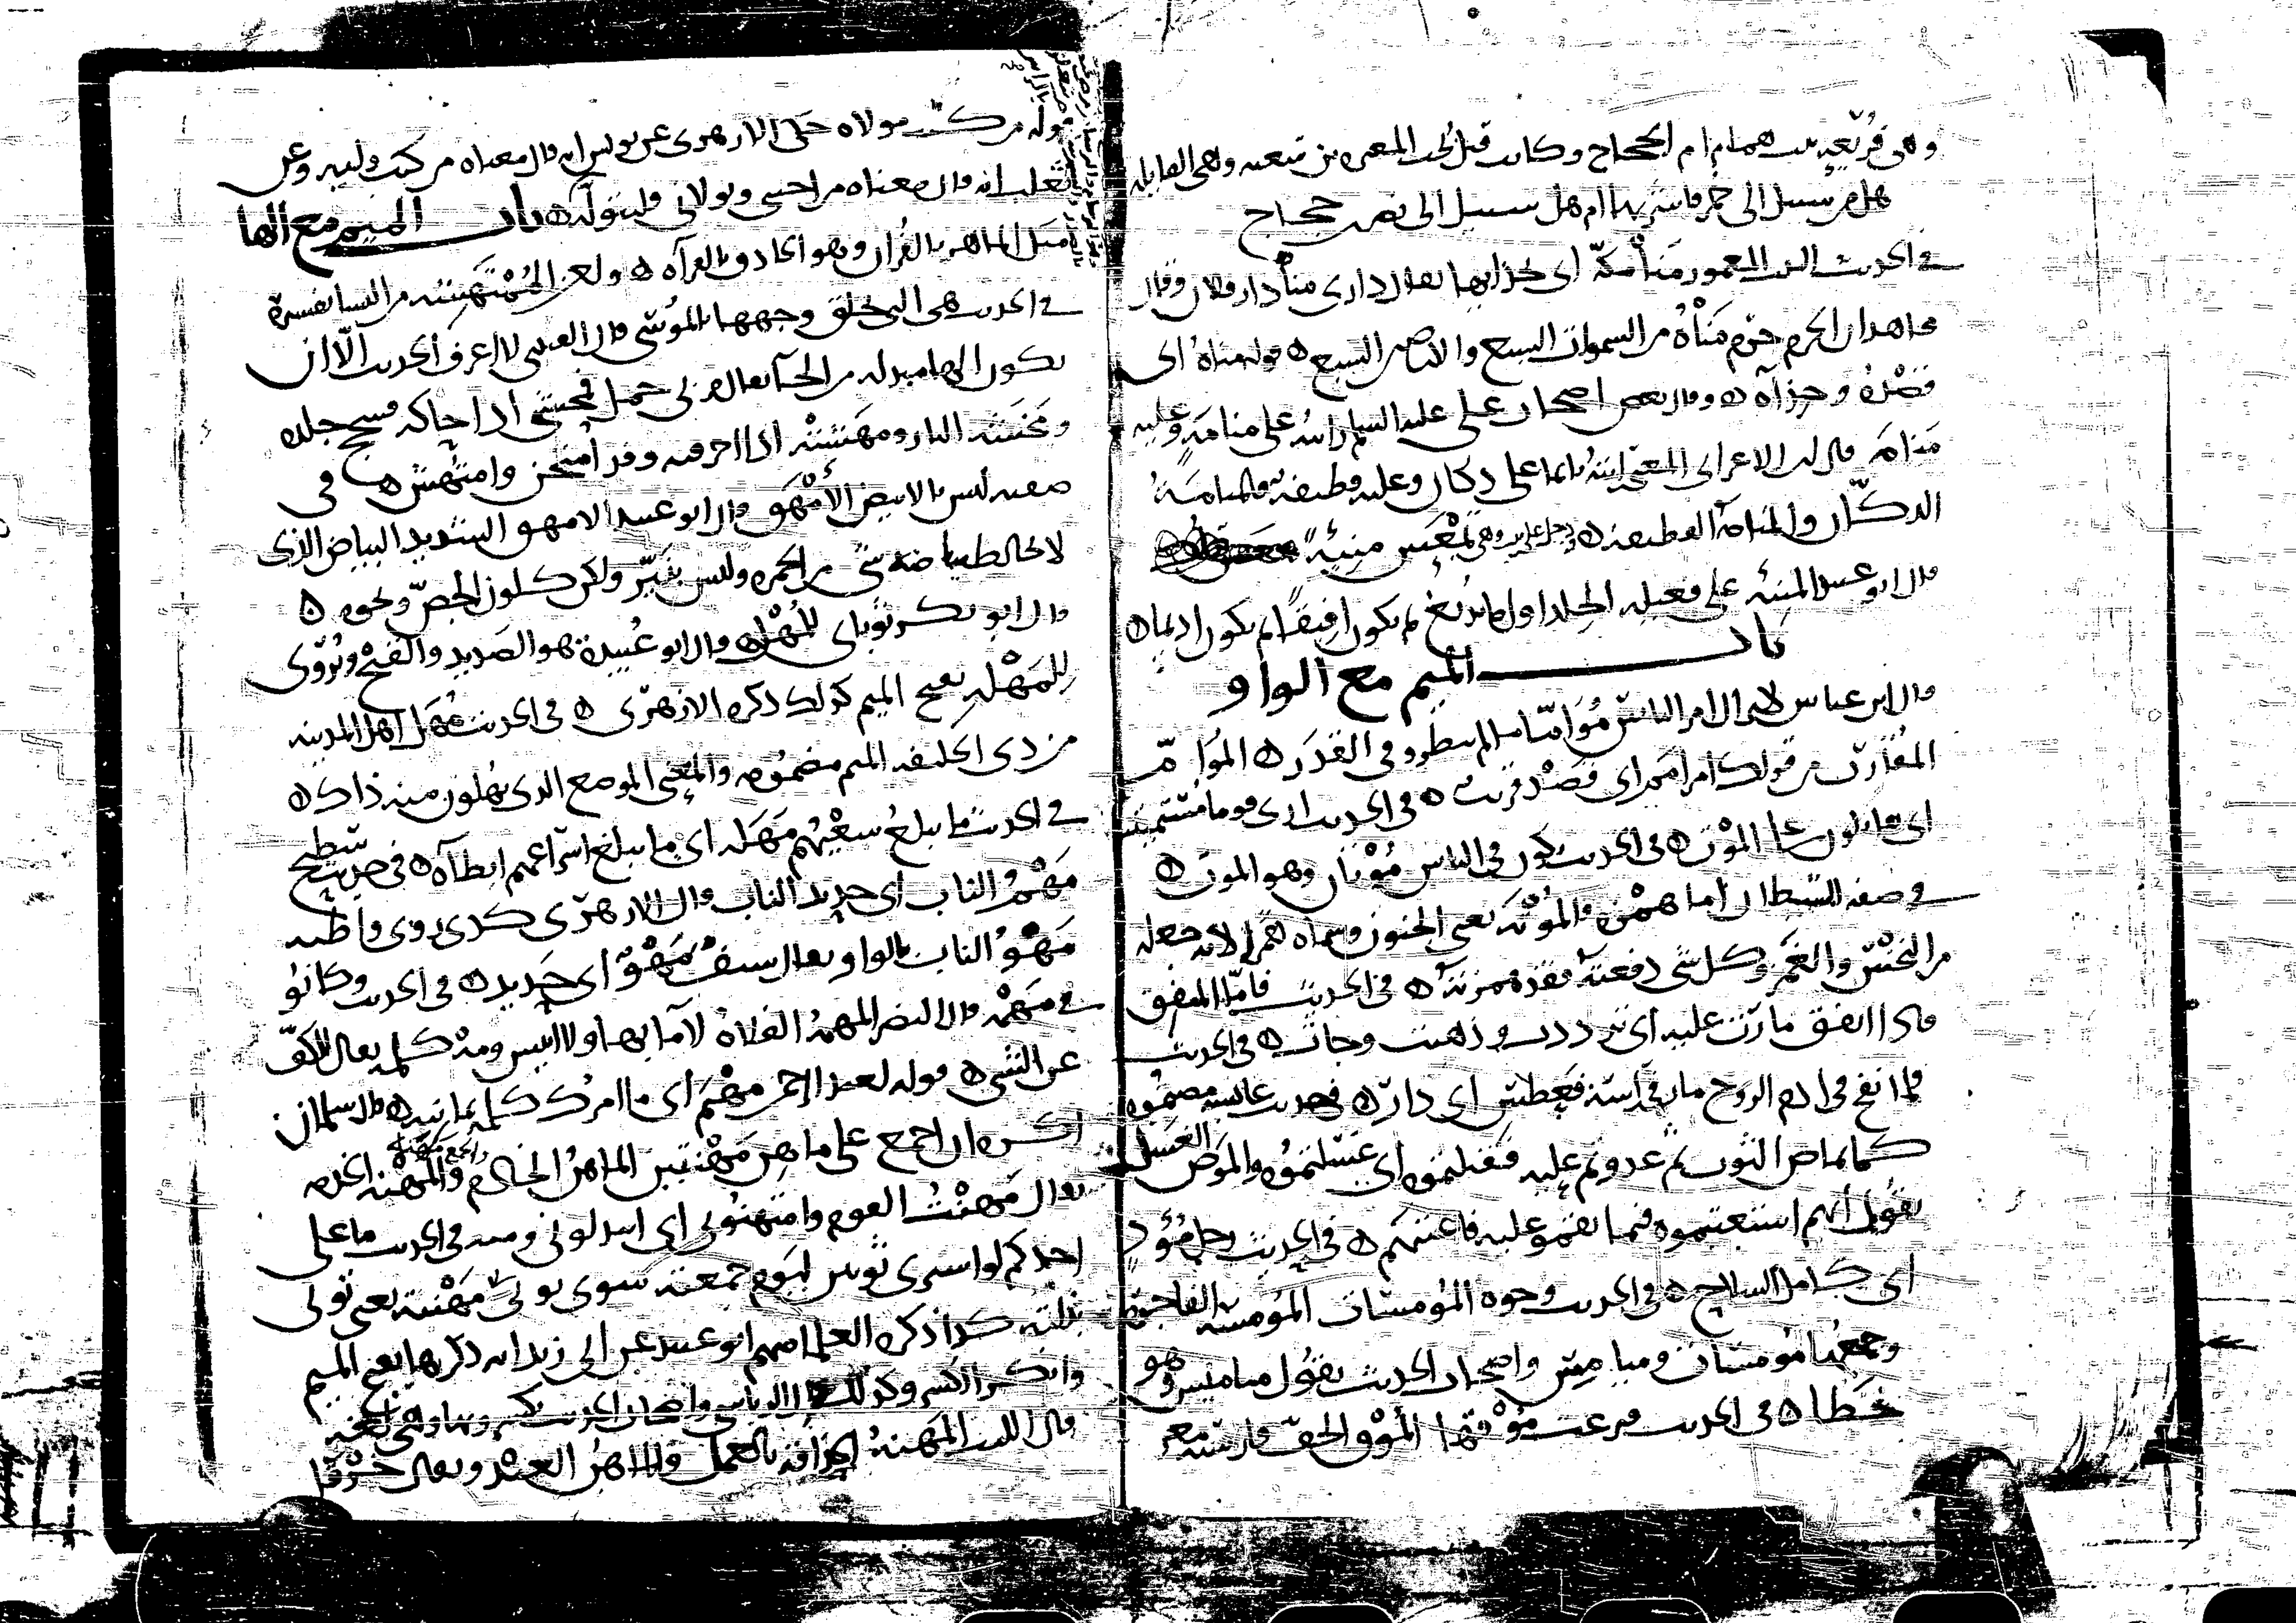 وهي فريعة بنت همام ام الحجاج وكانت قبل تحت المغيرة بن شعبة وهي القايلة
هل من سبيل الى خمر فاشربها ام هل سبيل الى نصر حجاج
في الحديث البيت المعمور منا مكة اي بحذايها يقال داري منا دار فلان وقال
مجاهد ان الحرم حرم مناه من السموات السبع والارضين السبع ه قوله مناه اي
قصده وحذاه ه وقال بعض اصحاب علي عليه السلم رايته على منامة وعليه
منامة قال ابن الاعرابي المعنى رايته نايما على دكان وعليه قطيفة فالمنامة
الدكان والمنامة القطيفة ه وهي تمعس منيئة
قال ابو عبيد المنيئة على فعيلة الجلد اول ما يدبغ ثم يكون افيقا ثم يكون اديما ه
باب الميم مع الواو
قال ابن عباس لا يزال امر الناس مؤاما ما لم ينظروا في القدر ه المؤام
المقارب من قولك امر امم اي قصد قريب ه في الحديث ارى قوما مستميتين
اي يقاتلون على الموت ه في الحديث يكون في الناس موتان وهو الموت ه
في صفة الشيطان اما همزه فالموتة يعني الجنون وسماه همزا لانه جعله
من النخس والغمز وكل شي دفعته فقد همزته ه في الحديث فاما المنفق
فاذا انفق مارت عليه اي ترددت وذهبت وجات ه في الحديث
لما نفخ في ادم الروح مار في راسه فعطس اي دار ه في حديث عايشة مصتموه
كما يماص الثوب ثم عدوتم عليه فقتلتموه اي غسلتموه والموص الغسل
تقول انهم استعتبتموه فيما نقمتم عليه فاعتبكم ه في الحديث رجل مؤد
اي كامل السلاح ه في الحديث وجوه المومسات المومسة الفاجرة
وجمعها مومسات وميامس واصحاب الحديث يقول مياميس وهو
خطا ه في الحديث فنزعت موقها الموق الخف فارسية معر
قوله من كنت مولاه حكى الازهري عن يونس انه قال معناه من كنت وليه وعن
ثعلب انه قال معناه من احبني وتولاني فليتوله ه باب الميم مع الها
مثل الماهر بالقران وهو الحاذق بالقراة ه ولعن الممتهشة من النسا تفسيره
في الحديث هي التي تحلق وجهها بالموسى قال القتيبي لا اعرف الحديث الا ان
تكون الها مبدلة من الحا يقال مر بي حمل فمحشني اذا حاكه فسحج جلده
ومحشته النار ومهشته اذا احرقته وقد امتحش وامتهش ه في
صفته ليس بالابيض الامهق قال ابو عبيد الامهق الشديد البياض الذي
لا يخالط بياضه شي من الحمرة وليس بنير ولكن كلون الجص ونحوه ه
قال ابو بكر ثوباي للمهل ه قال ابو عبيدة هو الصديد والقيح وتروى
للمهلة بفتح الميم كذلك ذكره الازهري ه في الحديث مهل اهل المدينة
من ذي الحليفة الميم مضمومة والمعنى الموضع الذي يهلون منه ذاك ه
في الحديث ما يبلغ سعيهم مهله اي ما يبلغ اسراعهم ابطاه ه في حديث سطيح
مهم الناب اي حديد الناب قال الازهري كذي روي واظنه
مهو الناب بالواو يقال سيف مهو اي حديد ه في الحديث وكانوا
في مهمه قال النضر المهمه الفلاة لا ما بها ولا انيس ومه كلمة يقال للكف
عن الشي ه قوله لعبد الرحمن مهيم اي ما امرك كلمة يمانية ه قال سلمان
اكره ان اجمع على ماهن مهنتين الماهن الخادم والمهنة الخدمة
يقال مهنت القوم وامتهنوني اي ابتذلوني ومنه في الحديث ما على
احدكم لو اشترى ثوبين ليوم جمعته سوى ثوبي مهنته يعني ثوبي
بذلته كذا ذكره العلما منهم ابو عبيد عن ابي زيد انه ذكرها بفتح الميم
وانكر الكسر وكذلك قال الرياشي واصحاب الحديث يكسرونها
قال الليث المهنة الحذاقة بالعمل والماهن العبد ويقال خرقا